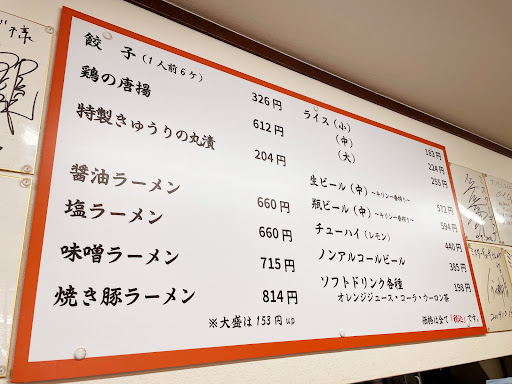 餃子(1人前6ケ) 326円
鶏の唐揚 612円
特製きゅうりの丸漬 204円
醤油ラーメン 660円
塩ラーメン 660円
味噌ラーメン 715円
焼き豚ラーメン 814円
※大盛は153円up
ライス(小) 183円
(中) 224円
(大) 255円
生ビール(中)〜キリン一番搾り〜 572円
瓶ビール(中)〜キリン一番搾り〜 594円
チューハイ(レモン) 440円
ノンアルコールビール 385円
ソフトドリンク各種 198円
オレンジジュース・コーラ・ウーロン茶
価格は全て「税込」です。